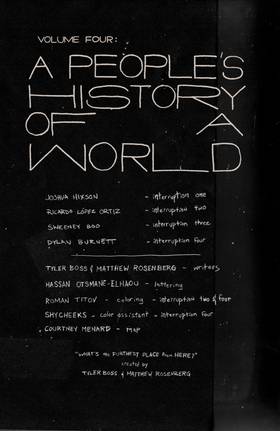 VOLUME FOUR:
A PEOPLE'S
HISTORY
OF A
WORLD
JOSHUA HIXSON - interruption one
RICARDO LÓPEZ ORTIZ - interruption two
SWEENEY BOO - interruption three
DYLAN BURNETT - interruption four
TYLER BOSS & MATTHEW ROSENBERG - writers
HASSAN OTSMANE-ELHAOU - lettering
ROMAN TITOV - coloring - interruption two & four
SHYCHEEKS - color assistant - interruption four
COURTNEY MENARD - map
"WHAT'S THE FURTHEST PLACE FROM HERE?"
created by
TYLER BOSS & MATTHEW ROSENBERG